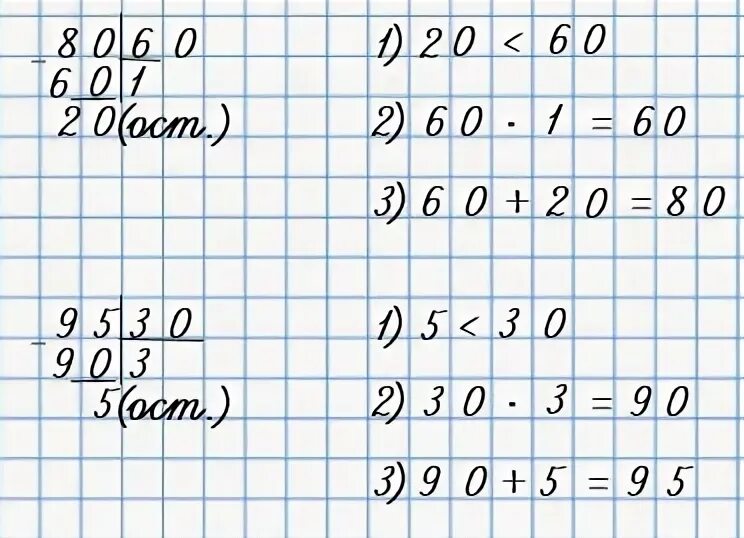 80 60
- 60 1
20 (ост.)
1) 20 < 60
2) 60 · 1 = 60
3) 60 + 20 = 80
95 30
- 90 3
5 (ост.)
1) 5 < 30
2) 30 · 3 = 90
3) 90 + 5 = 95